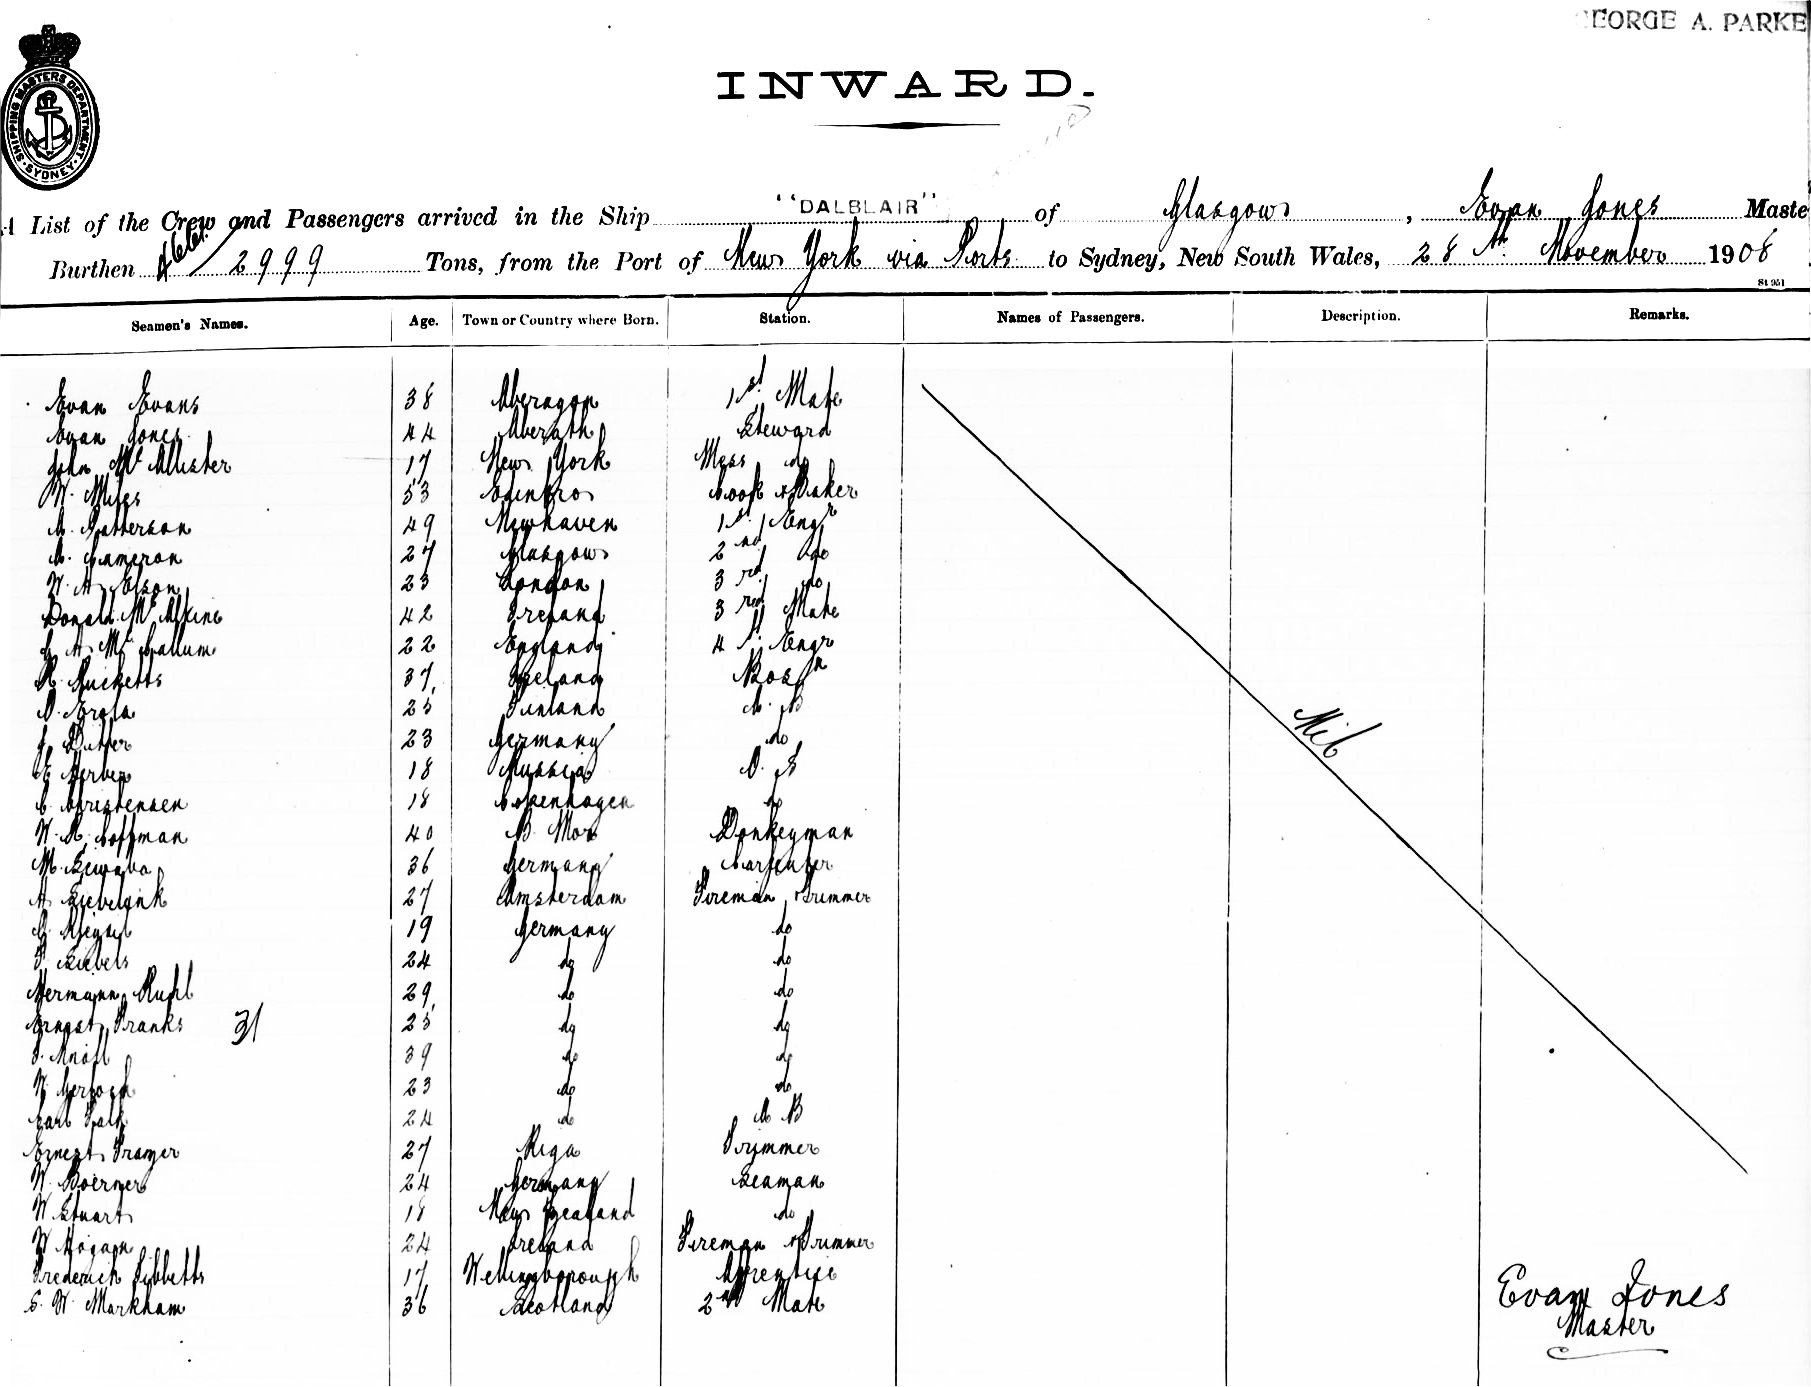 GEORGE A. PARKE
SHIPPING MASTERS DEPARTMENT · SYDNEY ·
INWARD.
A List of the Crew and Passengers arrived in the Ship "DALBLAIR" of Glasgow, Evan Jones Maste
Burthen 4661/2999 Tons, from the Port of New York via Ports to Sydney, New South Wales, 28th November 1908
St 951
Seamen's Names. Age. Town or Country where Born. Station. Names of Passengers. Description. Remarks.
Evan Evans 38 Aberayon 1st Mate
Evan Jones 44 Aberath Steward
John McAllister 17 New York Mess do
W. Miles 53 Edinbro Cook & Baker
A. Patterson 49 Newhaven 1st Engr
A. Cameron 27 Glasgow 2nd do
W. A. Olson 23 London 3rd do
Donald 42 Ireland 3rd Mate
A. McCallum 22 England 4th Engr
R. Ricketts 37 Ireland Bosn
25 Finland A. B
23 Germany do
18 Russia O. S
C. Christensen 18 Copenhagen do
W. Coffman 40 Donkeyman
M. 36 Germany Carpenter
A 27 Amsterdam Fireman & Trimmer
19 Germany do
24 do do
Hermann Ruhl 29 do do
Ernest Franks 31 25 do do
Knoll 39 do do
W. 23 do do
Carl Falk 24 do A B
Ernest 27 Riga Trimmer
W. Boerner 24 Germany Seaman
W Stuart 18 New Zealand do
W Hogan 24 Ireland Fireman & Trimmer
Frederick Tibbetts 17 Wellingborough Apprentice
S. W. Markham 36 Scotland 2nd Mate
Nil
Evan Jones
Master